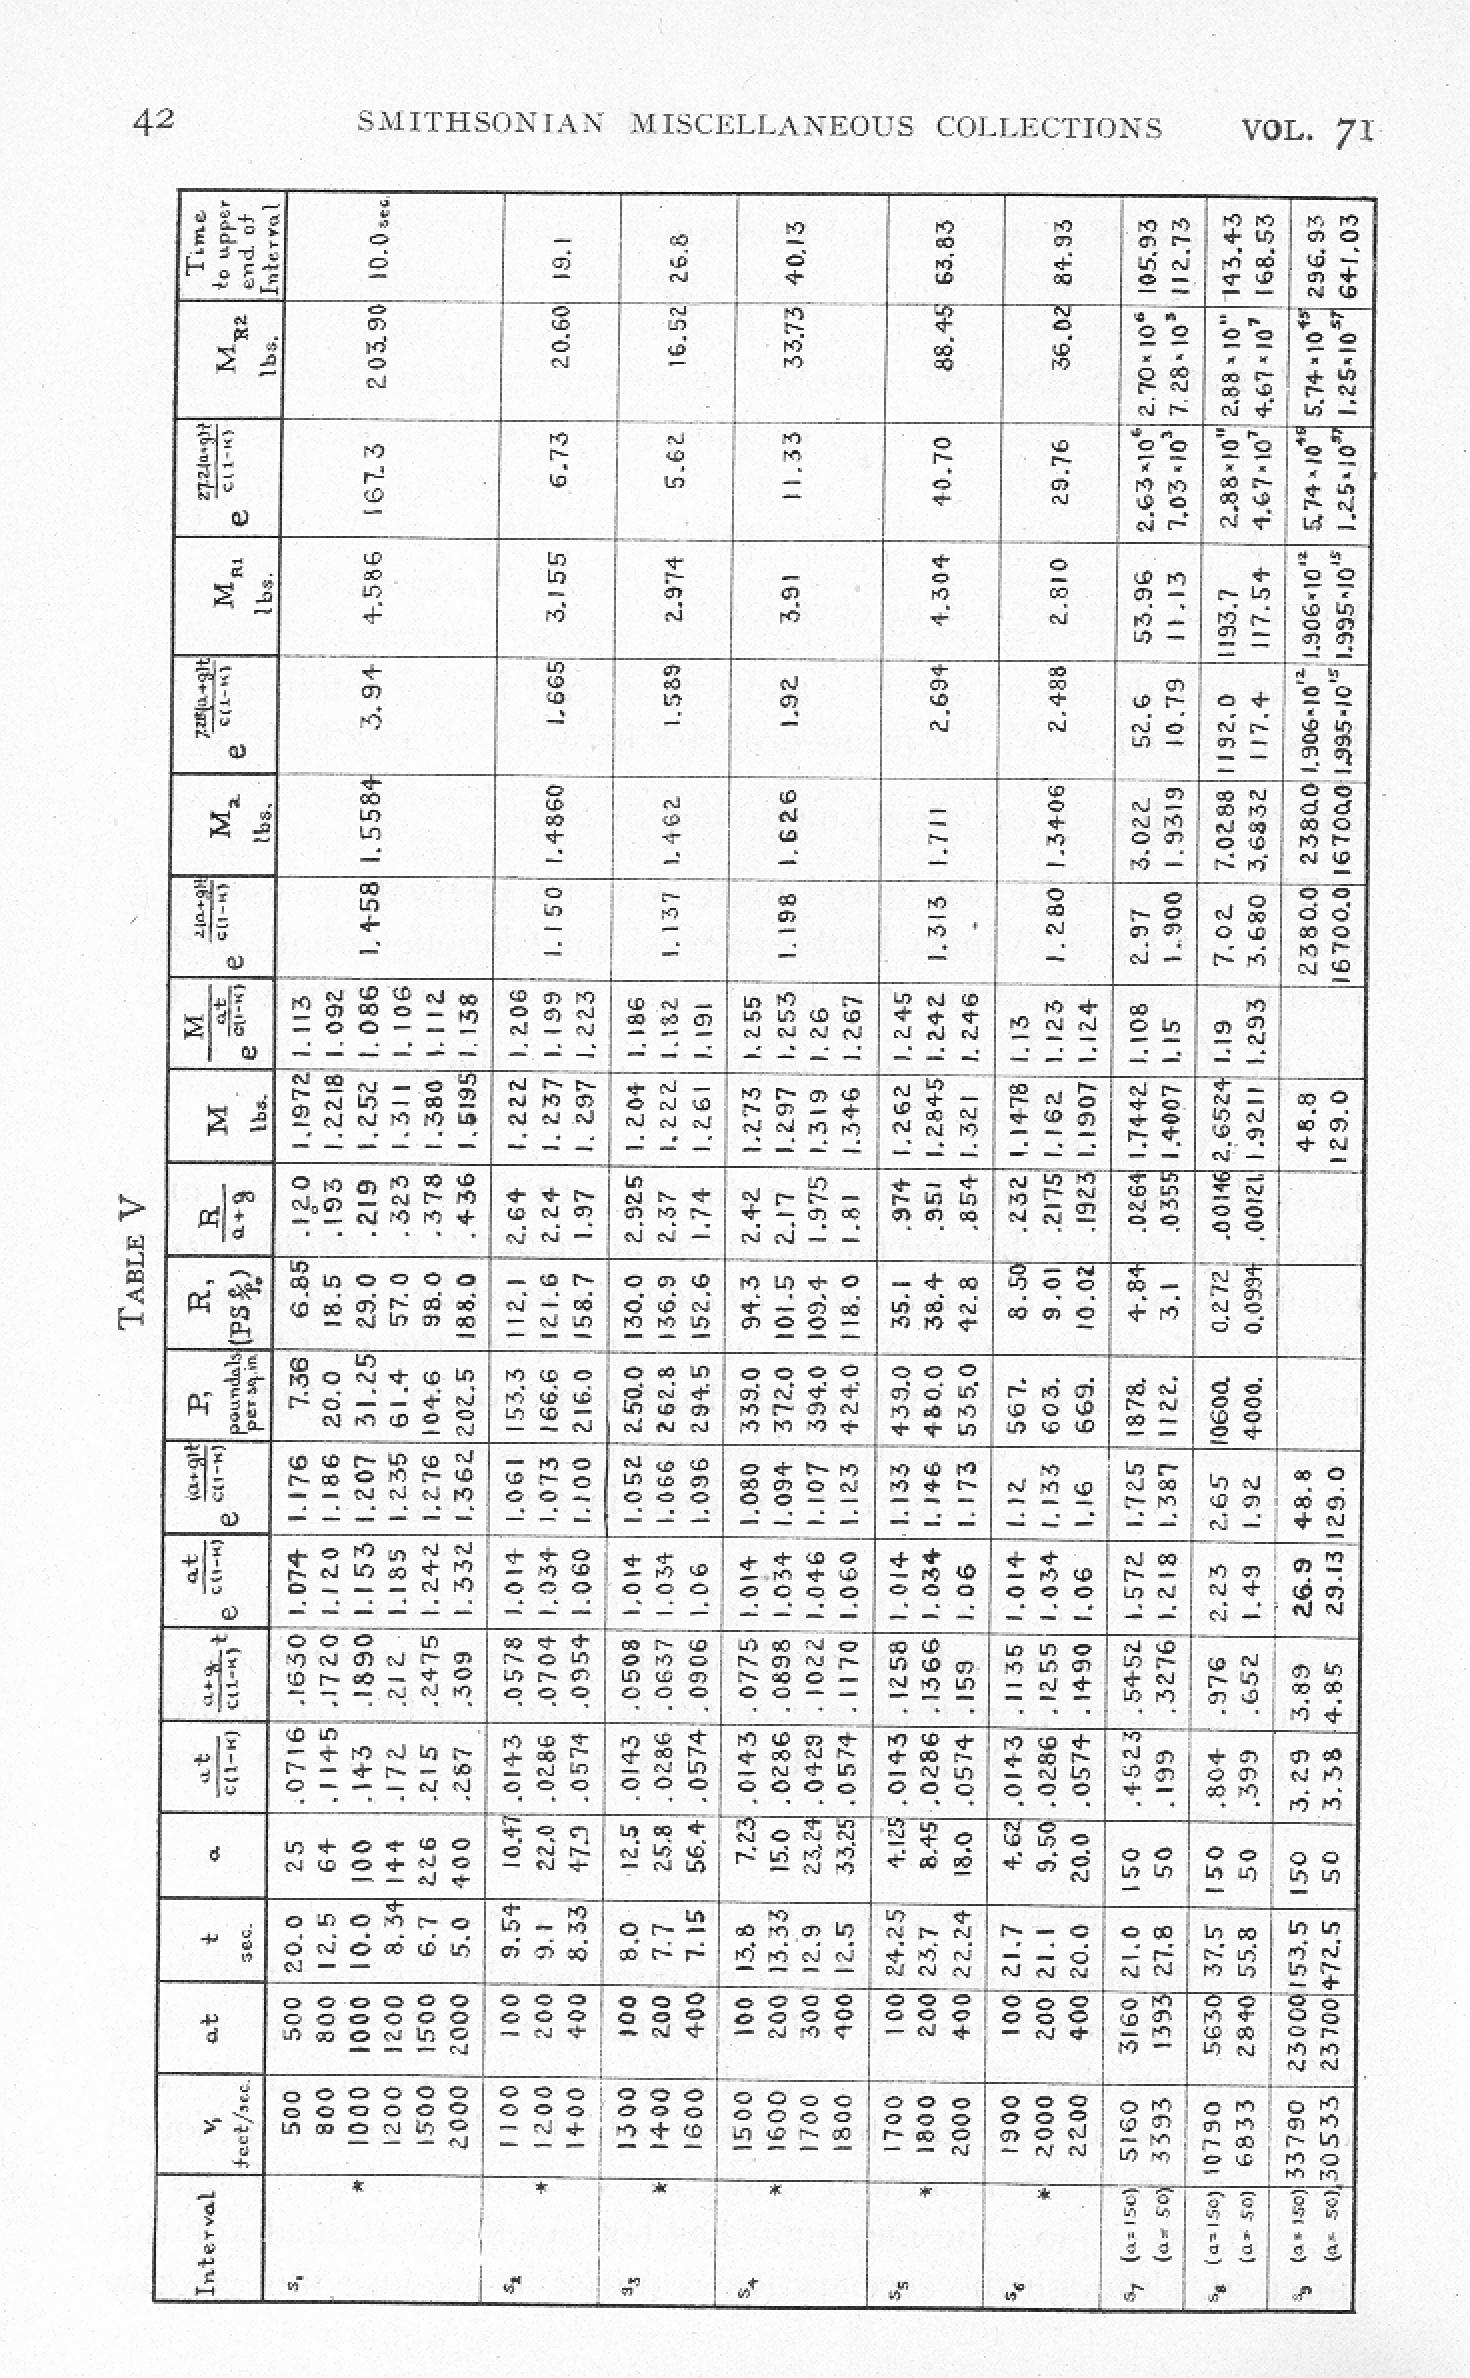 42 SMITHSONIAN MISCELLANEOUS COLLECTIONS VOL. 71
TABLE V
Interval | v, feet/sec. | at | t sec. | a | at/c(1-K) | a+g/c(1-K) t | e at/c(1-K) | e (a+g)t/c(1-K) | P, poundals per sq.in. | R, | R/a+g | M lbs. | M/e at/c(1-K) | e 2(a+g)t/c(1-K) | M2 lbs. | e 7.28(a+g)t/c(1-K) | MR1 lbs. | e 27.2(a+g)t/c(1-K) | MR2 lbs. | Time to upper end of Interval
s1 | 500 | 500 | 20.0 | 25 | .0716 | .1630 | 1.074 | 1.176 | 7.36 | 6.85 | .120 | 1.1972 | 1.113
800 | 800 | 12.5 | 64 | .1145 | .1720 | 1.120 | 1.186 | 20.0 | 18.5 | .193 | 1.2218 | 1.092
* 1000 | 1000 | 10.0 | 100 | .143 | .1890 | 1.153 | 1.207 | 31.25 | 29.0 | .219 | 1.252 | 1.086 | 1.458 | 1.5584 | 3.94 | 4.586 | 167.3 | 203.90 | 10.0 sec.
1200 | 1200 | 8.34 | 144 | .172 | .212 | 1.185 | 1.235 | 61.4 | 57.0 | .323 | 1.311 | 1.106
1500 | 1500 | 6.7 | 226 | .215 | .2475 | 1.242 | 1.276 | 104.6 | 98.0 | .378 | 1.380 | 1.112
2000 | 2000 | 5.0 | 400 | .287 | .309 | 1.332 | 1.362 | 202.5 | 188.0 | .436 | 1.5195 | 1.138
s2 | 1100 | 100 | 9.54 | 10.47 | .0143 | .0578 | 1.014 | 1.061 | 153.3 | 112.1 | 2.64 | 1.222 | 1.206
* 1200 | 200 | 9.1 | 22.0 | .0286 | .0704 | 1.034 | 1.073 | 166.6 | 121.6 | 2.24 | 1.237 | 1.199 | 1.150 | 1.4860 | 1.665 | 3.155 | 6.73 | 20.60 | 19.1
1400 | 400 | 8.33 | 47.9 | .0574 | .0954 | 1.060 | 1.100 | 216.0 | 158.7 | 1.97 | 1.297 | 1.223
s3 | 1300 | 100 | 8.0 | 12.5 | .0143 | .0508 | 1.014 | 1.052 | 250.0 | 130.0 | 2.925 | 1.204 | 1.186
* 1400 | 200 | 7.7 | 25.8 | .0286 | .0637 | 1.034 | 1.066 | 262.8 | 136.9 | 2.37 | 1.222 | 1.182 | 1.137 | 1.462 | 1.589 | 2.974 | 5.62 | 16.52 | 26.8
1600 | 400 | 7.15 | 56.4 | .0574 | .0906 | 1.06 | 1.096 | 294.5 | 152.6 | 1.74 | 1.261 | 1.191
s4 | 1500 | 100 | 13.8 | 7.23 | .0143 | .0775 | 1.014 | 1.080 | 339.0 | 94.3 | 2.42 | 1.273 | 1.255
* 1600 | 200 | 13.33 | 15.0 | .0286 | .0898 | 1.034 | 1.094 | 372.0 | 101.5 | 2.17 | 1.297 | 1.253 | 1.198 | 1.626 | 1.92 | 3.91 | 11.33 | 33.73 | 40.13
1700 | 300 | 12.9 | 23.24 | .0429 | .1022 | 1.046 | 1.107 | 394.0 | 109.4 | 1.975 | 1.319 | 1.26
1800 | 400 | 12.5 | 33.25 | .0574 | .1170 | 1.060 | 1.123 | 424.0 | 118.0 | 1.81 | 1.346 | 1.267
s5 | 1700 | 100 | 24.25 | 4.125 | .0143 | .1258 | 1.014 | 1.133 | 439.0 | 35.1 | .974 | 1.262 | 1.245
* 1800 | 200 | 23.7 | 8.45 | .0286 | .1366 | 1.034 | 1.146 | 480.0 | 38.4 | .951 | 1.2845 | 1.242 | 1.313 | 1.711 | 2.694 | 4.304 | 40.70 | 88.45 | 63.83
2000 | 400 | 22.24 | 18.0 | .0574 | .159 | 1.06 | 1.173 | 535.0 | 42.8 | .854 | 1.321 | 1.246
s6 | 1900 | 100 | 21.7 | 4.62 | .0143 | .1135 | 1.014 | 1.12 | 567. | 8.50 | .232 | 1.1478 | 1.13
* 2000 | 200 | 21.1 | 9.50 | .0286 | .1255 | 1.034 | 1.133 | 603. | 9.01 | .2175 | 1.162 | 1.123 | 1.280 | 1.3406 | 2.488 | 2.810 | 29.76 | 36.02 | 84.93
2200 | 400 | 20.0 | 20.0 | .0574 | .1490 | 1.06 | 1.16 | 669. | 10.02 | .1923 | 1.1907 | 1.124
s7 (a=150) | 5160 | 3160 | 21.0 | 150 | .4523 | .5452 | 1.572 | 1.725 | 1878. | 4.84 | .0264 | 1.7442 | 1.108 | 2.97 | 3.022 | 52.6 | 53.96 | 2.63×10⁶ | 2.70×10⁶ | 105.93
(a= 50) | 3393 | 1393 | 27.8 | 50 | .199 | .3276 | 1.218 | 1.387 | 1122. | 3.1 | .0355 | 1.4007 | 1.15 | 1.900 | 1.9319 | 10.79 | 11.13 | 7.03×10³ | 7.28×10³ | 112.73
s8 (a=150) | 10790 | 5630 | 37.5 | 150 | .804 | .976 | 2.23 | 2.65 | 10600. | 0.272 | .00146 | 2.6524 | 1.19 | 7.02 | 7.0288 | 1192.0 | 1193.7 | 2.88×10¹¹ | 2.88×10¹¹ | 143.43
(a= 50) | 6833 | 2840 | 55.8 | 50 | .399 | .652 | 1.49 | 1.92 | 4000. | 0.0994 | .00121 | 1.9211 | 1.293 | 3.680 | 3.6832 | 117.4 | 117.54 | 4.67×10⁷ | 4.67×10⁷ | 168.53
s9 (a=150) | 33790 | 23000 | 153.5 | 150 | 3.29 | 3.89 | 26.9 | 48.8 | 48.8 | 2380.0 | 2380.0 | 1.906×10¹² | 1.906×10¹² | 5.74×10⁴⁵ | 5.74×10⁴⁵ | 296.93
(a= 50) | 30533 | 23700 | 472.5 | 50 | 3.38 | 4.85 | 29.13 | 129.0 | 129.0 | 16700.0 | 16700.0 | 1.995×10¹⁵ | 1.995×10¹⁵ | 1.25×10⁵⁷ | 1.25×10⁵⁷ | 641.03